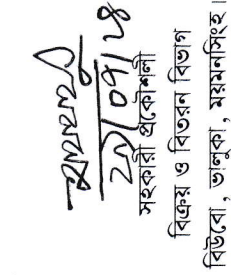 ২১/০৭/১৪
সহকারী প্রকৌশলী
বিক্রয় ও বিতরন বিভাগ
বিউবো, ভালুকা, ময়মনসিংহ।